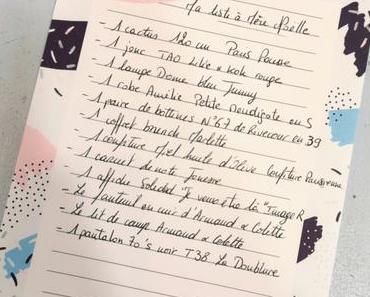 Ma list à Mère Noëlle
- 1 cactus 120 cm Pans Pause
- 1 jonc TAO Likie & Koh rouge
- 1 lampe Dome bleu Junny
- 1 robe Amélie Petite Mendigote en S
- 1 paire de bottines N°67 de Rivecour en 39
- 1 coffret brunch Marlette
- 1 confiture Miel huile d'Olive Confiture Parisienne
- 1 carnet de note
- 1 affiche Soledad "Je veux être là" Image R
- Le fauteuil en cuir d'Armand & Colette
- Le lit de camp Armand & Colette
- 1 pantalon 70's noir T38 La Doublure